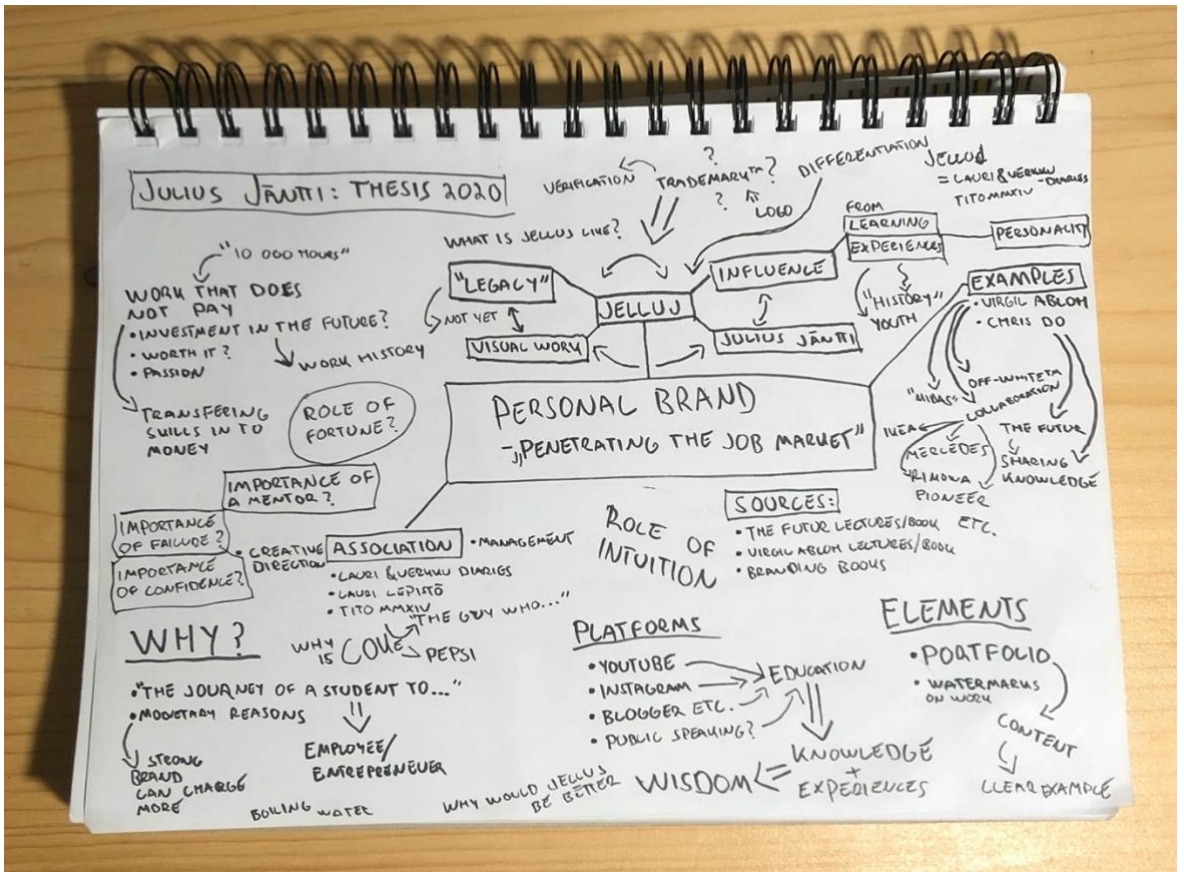 JULIUS JÄNTTI: THESIS 2020
VERIFICATION
?
TRADEMARK™?
?
LOGO
DIFFERENTIATION
JELLUJ
= LAURI & VERKKU -DIARIES
TITO MMXIV
"10 000 HOURS"
WORK THAT DOES
NOT PAY
• INVESTMENT IN THE FUTURE?
• WORTH IT?
• PASSION
WORK HISTORY
TRANSFERING
SKILLS IN TO
MONEY
WHAT IS JELLUJ LIKE?
"LEGACY"
NOT YET
VISUAL WORK
JELLUJ
INFLUENCE
JULIUS JÄNTTI
FROM
LEARNING
EXPERIENCES
PERSONALITY
"HISTORY"
YOUTH
EXAMPLES
• VIRGIL ABLOH
• CHRIS DO
"MIDAS"
OFF-WHITE™
COLLABORATION
IKEA
MERCEDES
RIMOWA
PIONEER
THE FUTUR
SHARING
KNOWLEDGE
PERSONAL BRAND
- "PENETRATING THE JOB MARKET"
ROLE OF
FORTUNE?
IMPORTANCE OF
A MENTOR?
IMPORTANCE
OF FAILURE?
IMPORTANCE
OF CONFIDENCE?
• CREATIVE
DIRECTION
ASSOCIATION
• MANAGEMENT
• LAURI & VERKKU DIARIES
• LAURI LEPISTÖ
• TITO MMXIV
"THE GUY WHO..."
ROLE OF
INTUITION
SOURCES:
• THE FUTUR LECTURES/BOOK ETC.
• VIRGIL ABLOH LECTURES/BOOK
• BRANDING BOOKS
WHY?
WHY
IS COKE
PEPSI
• "THE JOURNEY OF A STUDENT TO..."
• MONETARY REASONS
STRONG
BRAND
CAN CHARGE
MORE
EMPLOYEE/
ENTREPRENEUER
BOILING WATER
PLATFORMS
• YOUTUBE
• INSTAGRAM
• BLOGGER ETC.
• PUBLIC SPEAKING?
EDUCATION
KNOWLEDGE
+
EXPERIENCES
WISDOM
WHY WOULD JELLUJ
BE BETTER
ELEMENTS
• PORTFOLIO
• WATERMARKS
ON WORK
CONTENT
CLEAR EXAMPLE